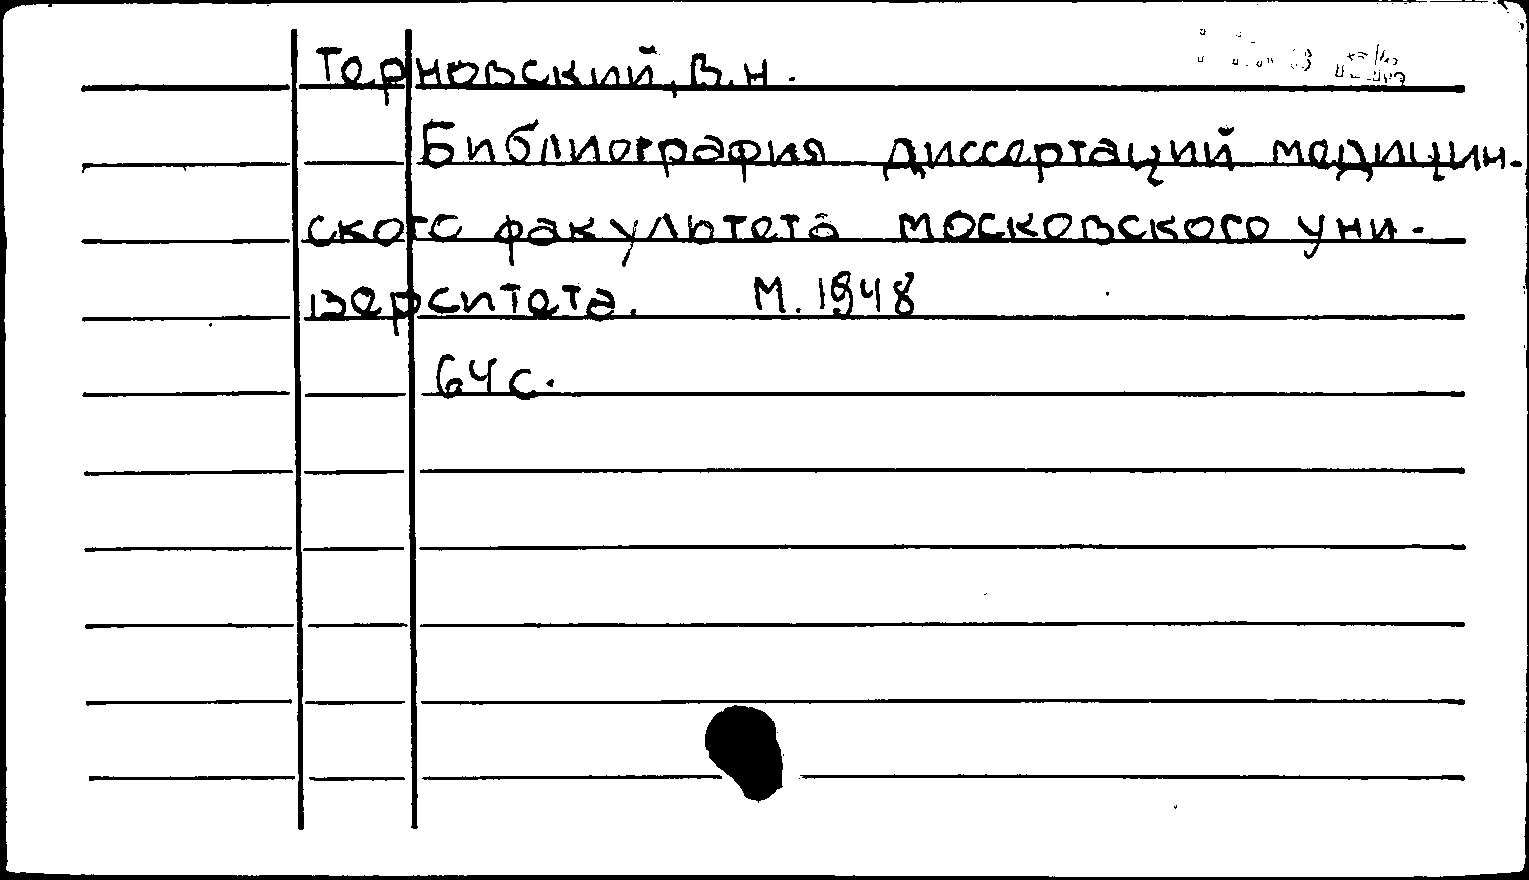 Терновский, В.Н.
Библиография диссертаций медицин-
ского факультета московского уни-
верситета. М. 1948
64 с.